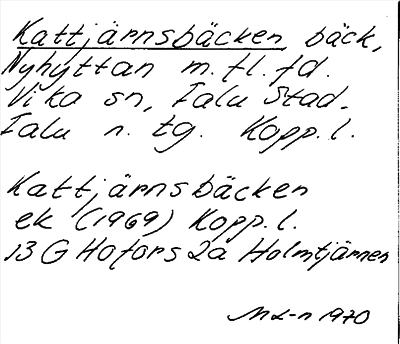 Kattjärnsbäcken, bäck,
Nyhyttan m.fl. fd.
Vika sn, Falu Stad.
Falu n. tg. Kopp. l.
Kattjärnsbäcken
ek (1969) Kopp. l.
13 G Hofors 2a Holmtjärnen
1970